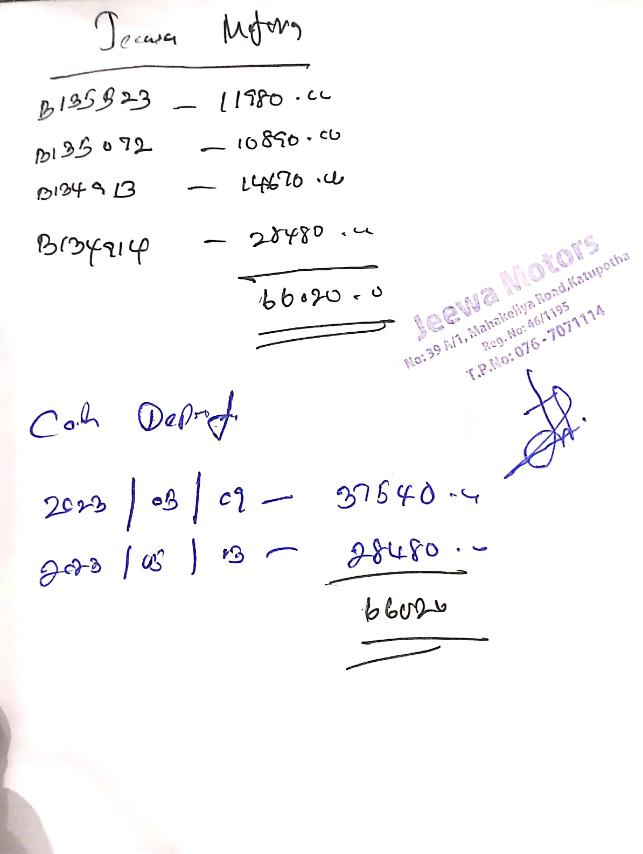 Jeewa Motors
B135323 - 11980.00
B135072 - 10890.00
B134913 - 14670.00
B134914 - 28480.00
66020.0
Jeewa Motors
No: 39 A/1, Mahakeliya Road, Katupotha
Reg. No: 46/1195
T.P.No: 076-7071114
Cash Deposit
2023/03/09 - 37540.00
2023/03/13 - 28480.00
66020